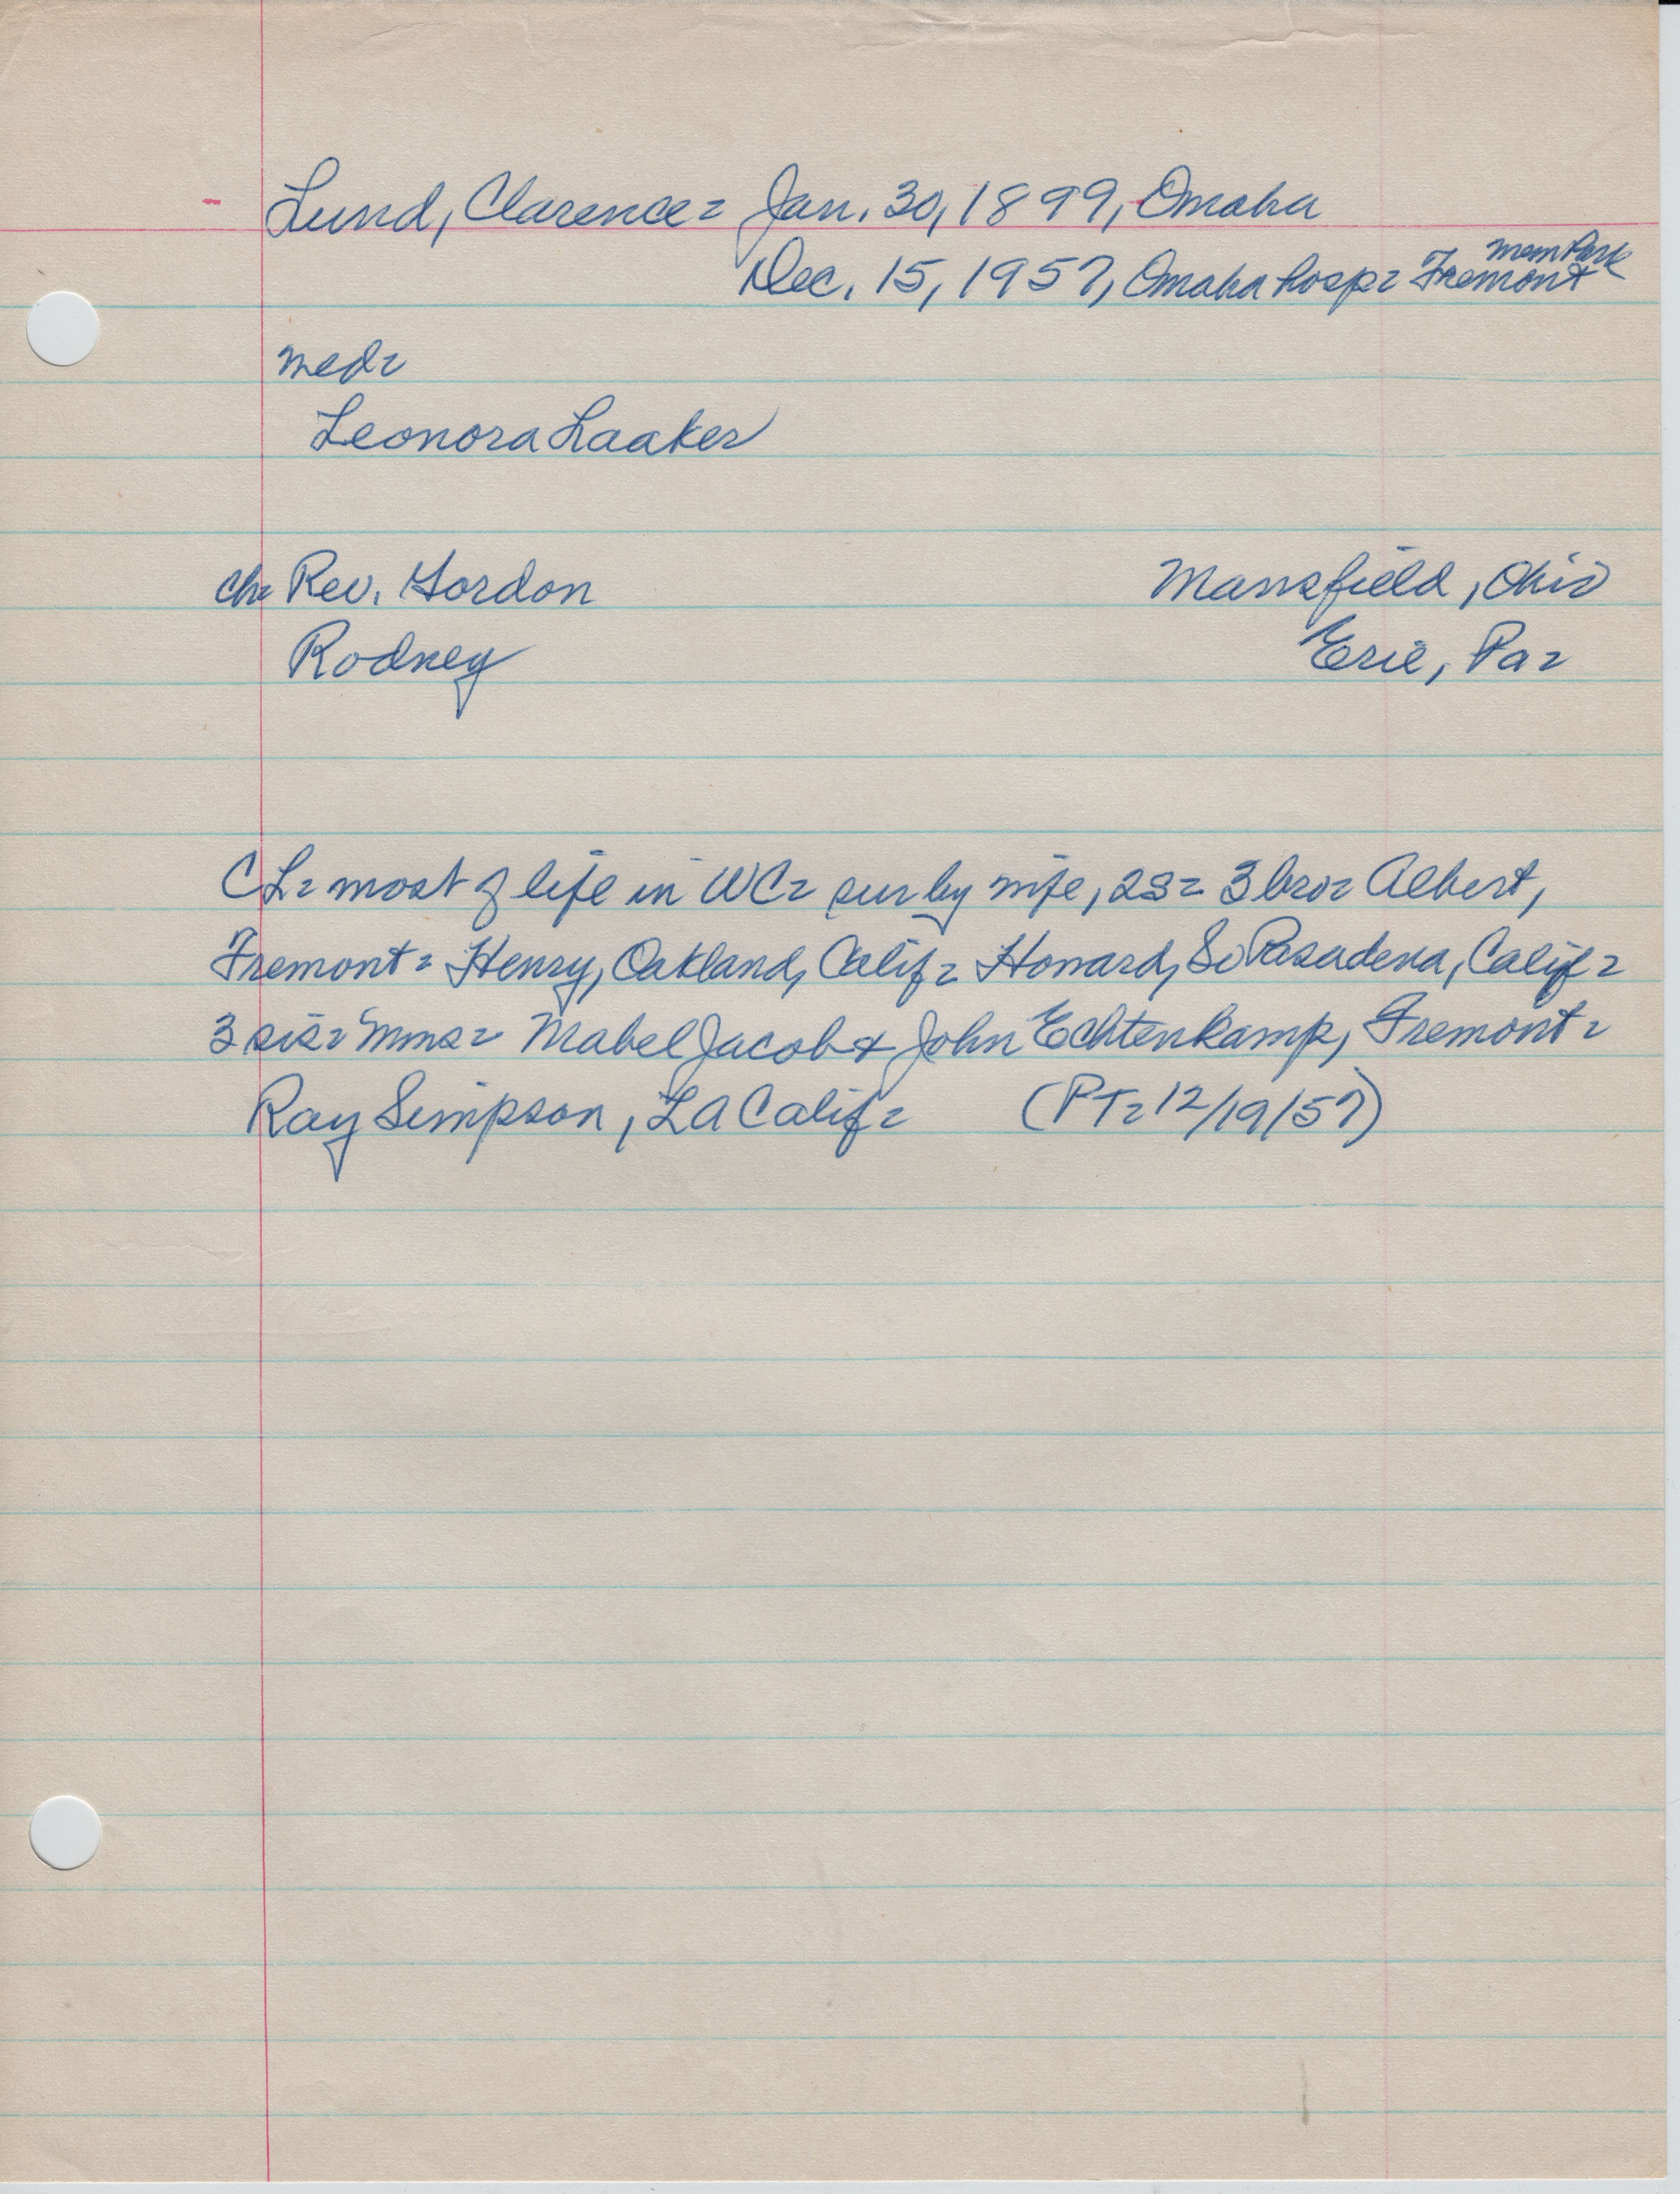 Lund, Clarence= Jan. 30, 1899, Omaha
Dec. 15, 1957, Omaha hosp= Fremont Mem Park
med=
Leonora Laaker
ch= Rev. Gordon Mansfield, Ohio
Rodney Erie, Pa=
CL= most of life in WC= sur by wife, 2s= 3 bro= Albert,
Fremont= Henry, Oakland, Calif= Howard, So Pasadena, Calif=
3 sis= Mms= Mabel Jacob & John Echtenkamp, Fremont=
Ray Simpson, LA Calif= (PT= 12/19/57)